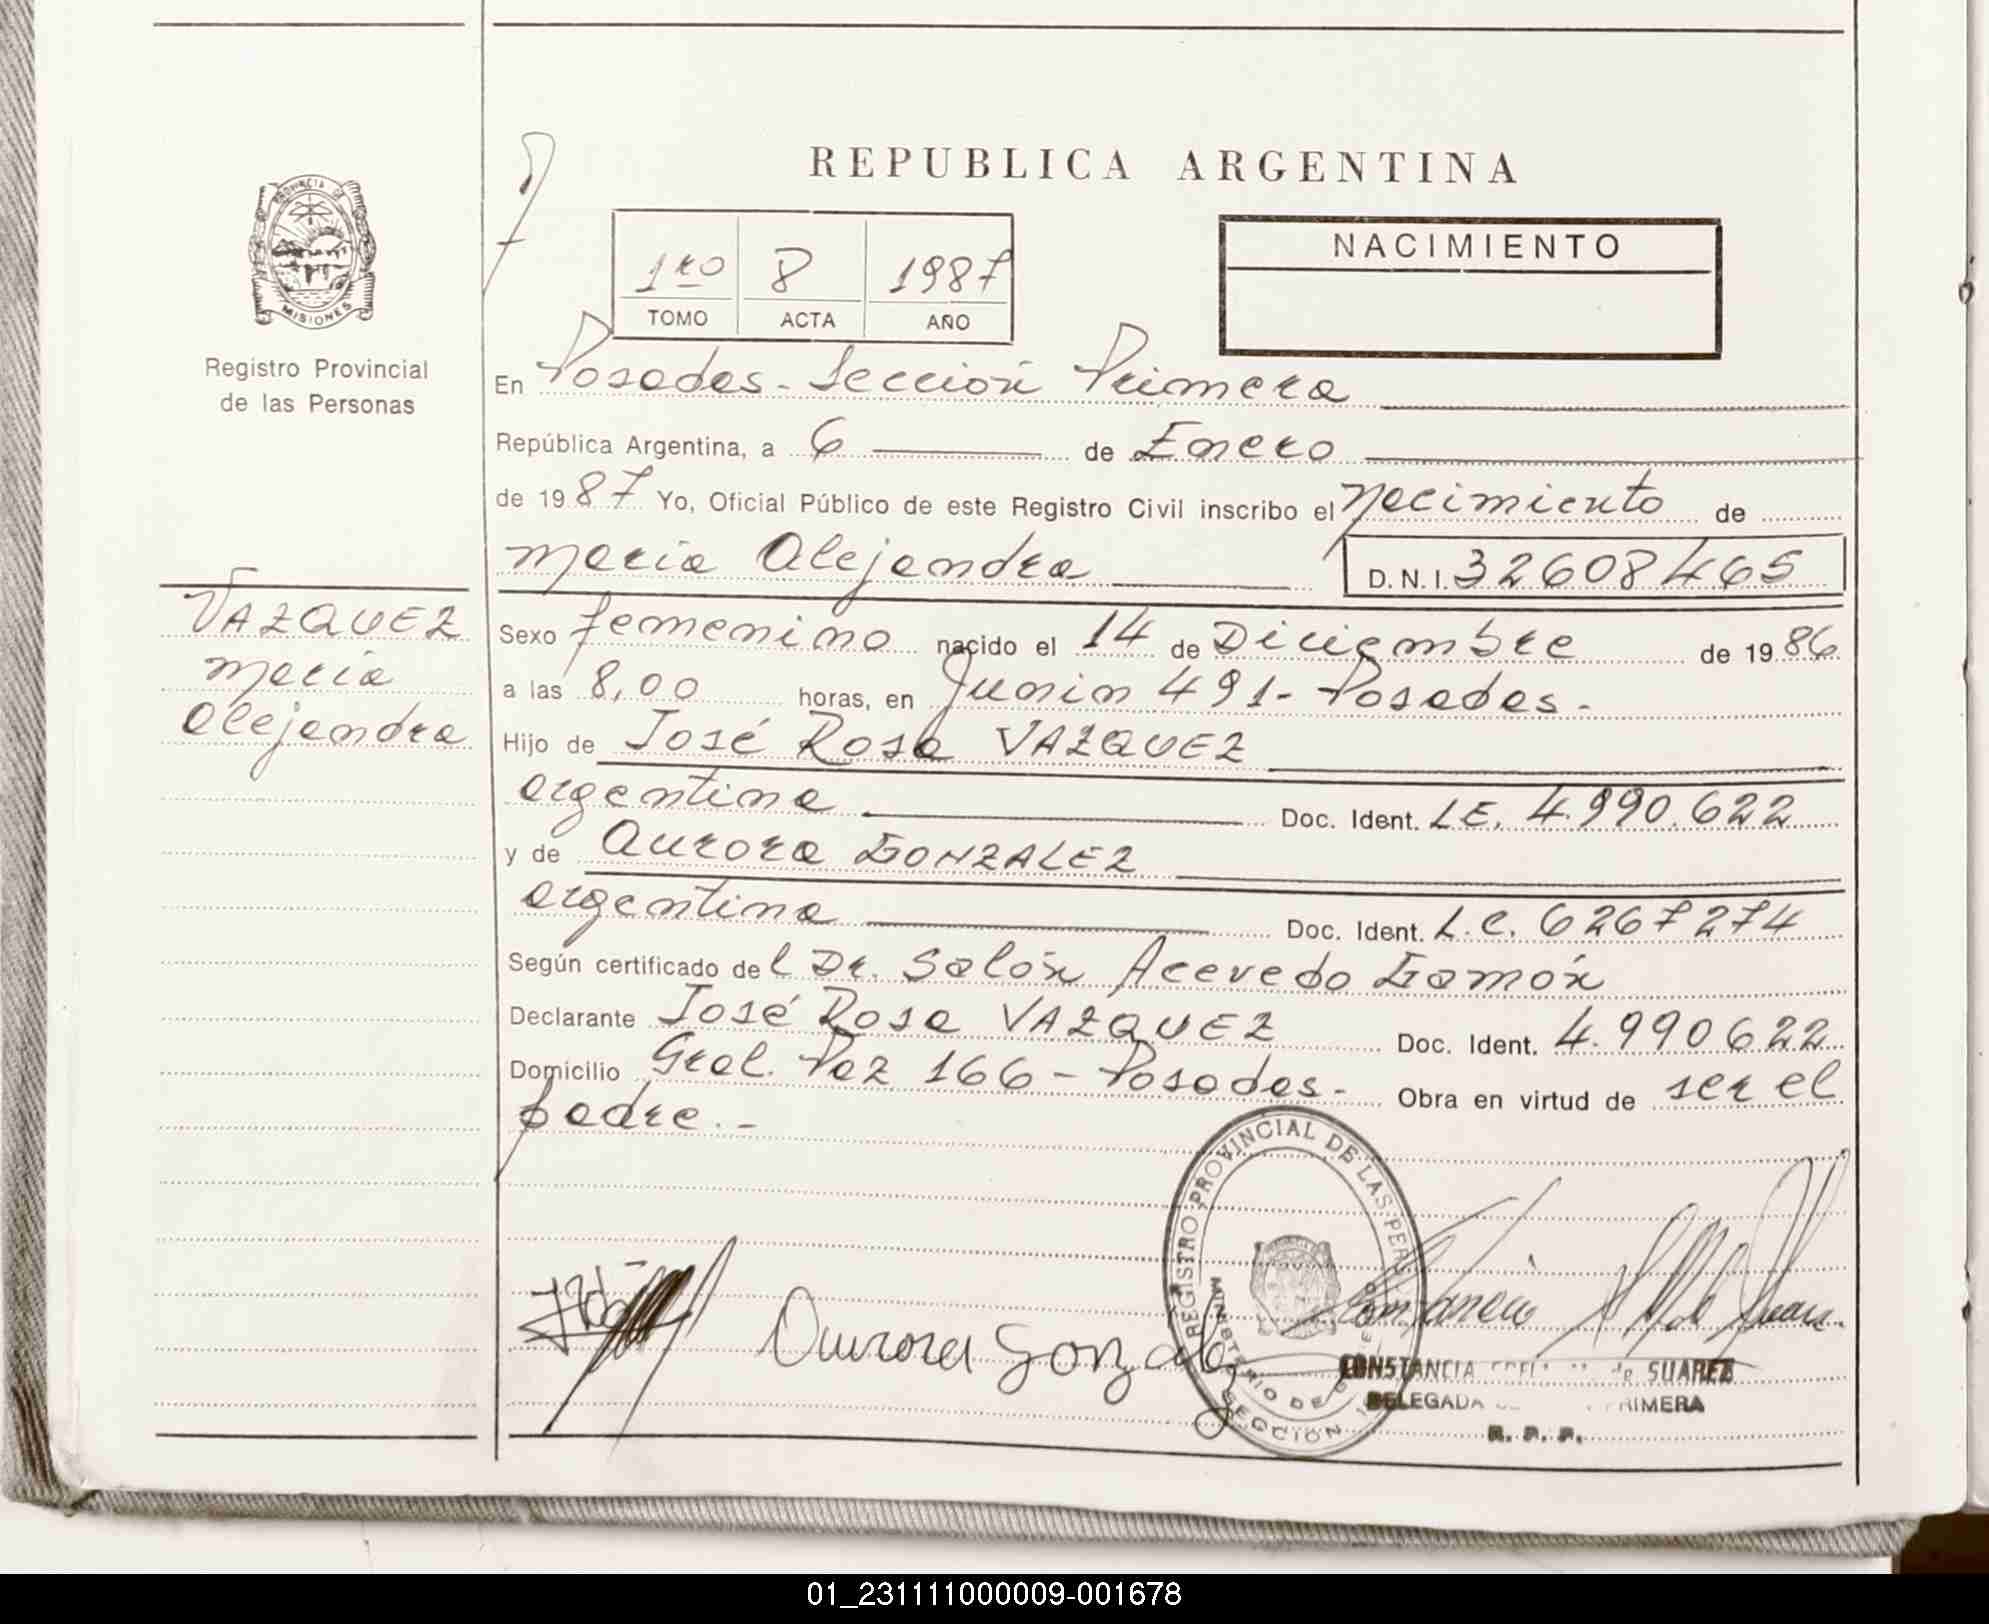 REPUBLICA ARGENTINA
PROVINCIA DE
MISIONES
Registro Provincial
de las Personas
1ro 8 1987
TOMO ACTA AÑO
NACIMIENTO
En Posadas - Sección Primera
República Argentina, a 6 de Enero
de 1987 Yo, Oficial Público de este Registro Civil inscribo el nacimiento de
María Alejandra D.N.I. 32608465
VAZQUEZ
María
Alejandra
Sexo femenino nacido el 14 de Diciembre de 1986
a las 8,00 horas, en Junin 491 - Posadas -
Hijo de José Rosa VAZQUEZ
argentina Doc. Ident. LE. 4.990.622
y de Aurora GONZALEZ
argentina Doc. Ident. L.C. 6267274
Según certificado del Dr. Solón Acevedo Gamón
Declarante José Rosa VAZQUEZ Doc. Ident. 4.990622
Domicilio Gral. Paz 166 - Posadas - Obra en virtud de ser el
padre. -
REGISTRO PROVINCIAL DE LAS PERS
MINISTERIO DE
SECCIÓN 1
Aurora Gonzalez
CONSTANCIA de SUAREZ
DELEGADA PRIMERA
R. P. P.
01_231111000009-001678